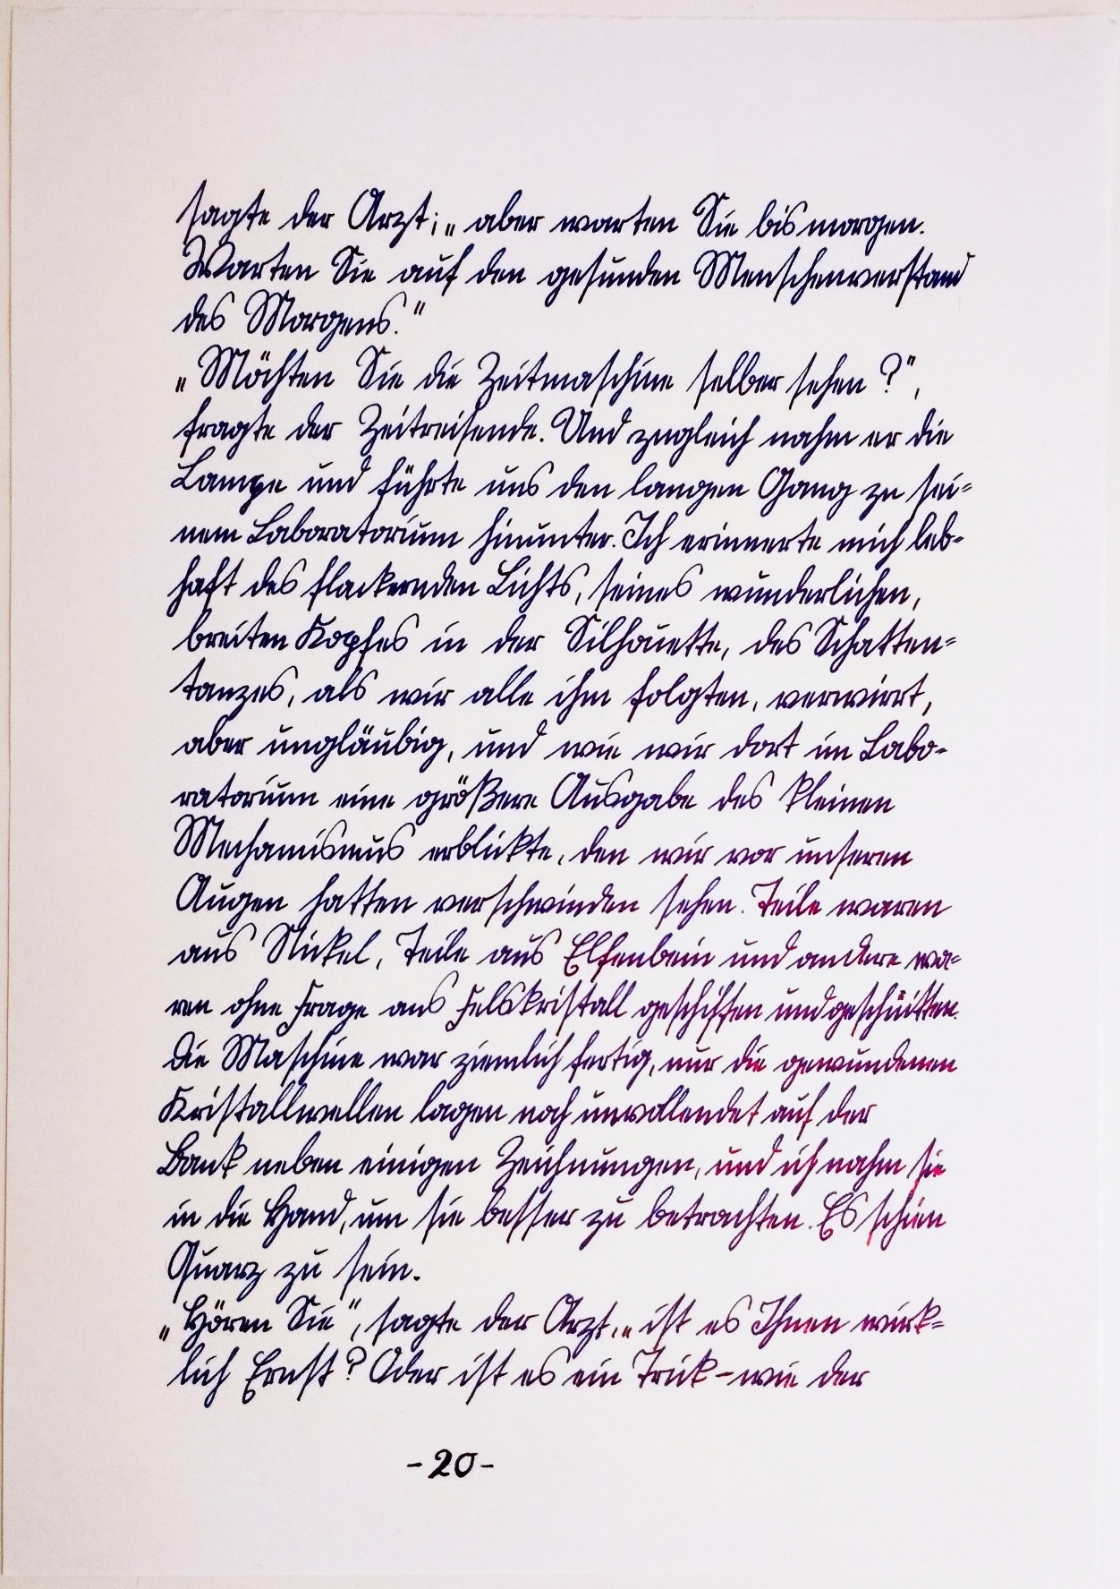 sagte der Arzt; „ aber warten Sie bis morgen.
Warten Sie auf den gesunden Menschenverstand
des Morgens."
„Möchten Sie die Zeitmaschine selber sehen?",
fragte der Zeitreisende. Und zugleich nahm er die
Lampe und führte uns den langen Gang zu sei=
nem Laboratorium hinunter. Ich erinnerte mich leb=
haft des flackernden Lichts, seines wunderlichen,
breiten Kopfes in der Silhouette, des Schatten=
tanzes, als wir alle ihm folgten, verwirrt,
aber ungläubig, und wie wir dort im Labo=
ratorium eine größere Ausgabe des kleinen
Mechanismus erblickte, den wir vor unseren
Augen hatten verschwinden sehen. Teile waren
aus Nickel, Teile aus Elfenbein und andere wa=
ren ohne Frage aus Felskristall geschiffen und geschnitten.
Die Maschine war ziemlich fertig, nur die gewundenen
Kristallwellen lagen noch unvollendet auf der
Bank neben einigen Zeichnungen, und ich nahm sie
in die Hand, um sie besser zu betrachten. Es schien
Quarz zu sein.
„Hören Sie", sagte der Arzt, „ist es Ihnen wirk=
lich Ernst? Oder ist es ein Trick - wie der
-20-